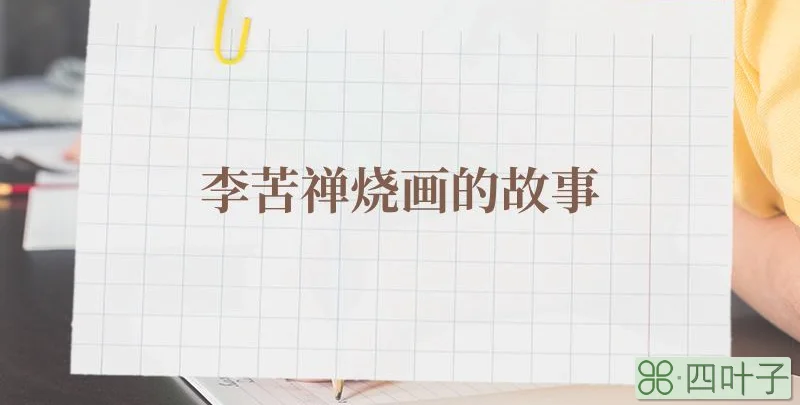 李苦禅烧画的故事
四叶子